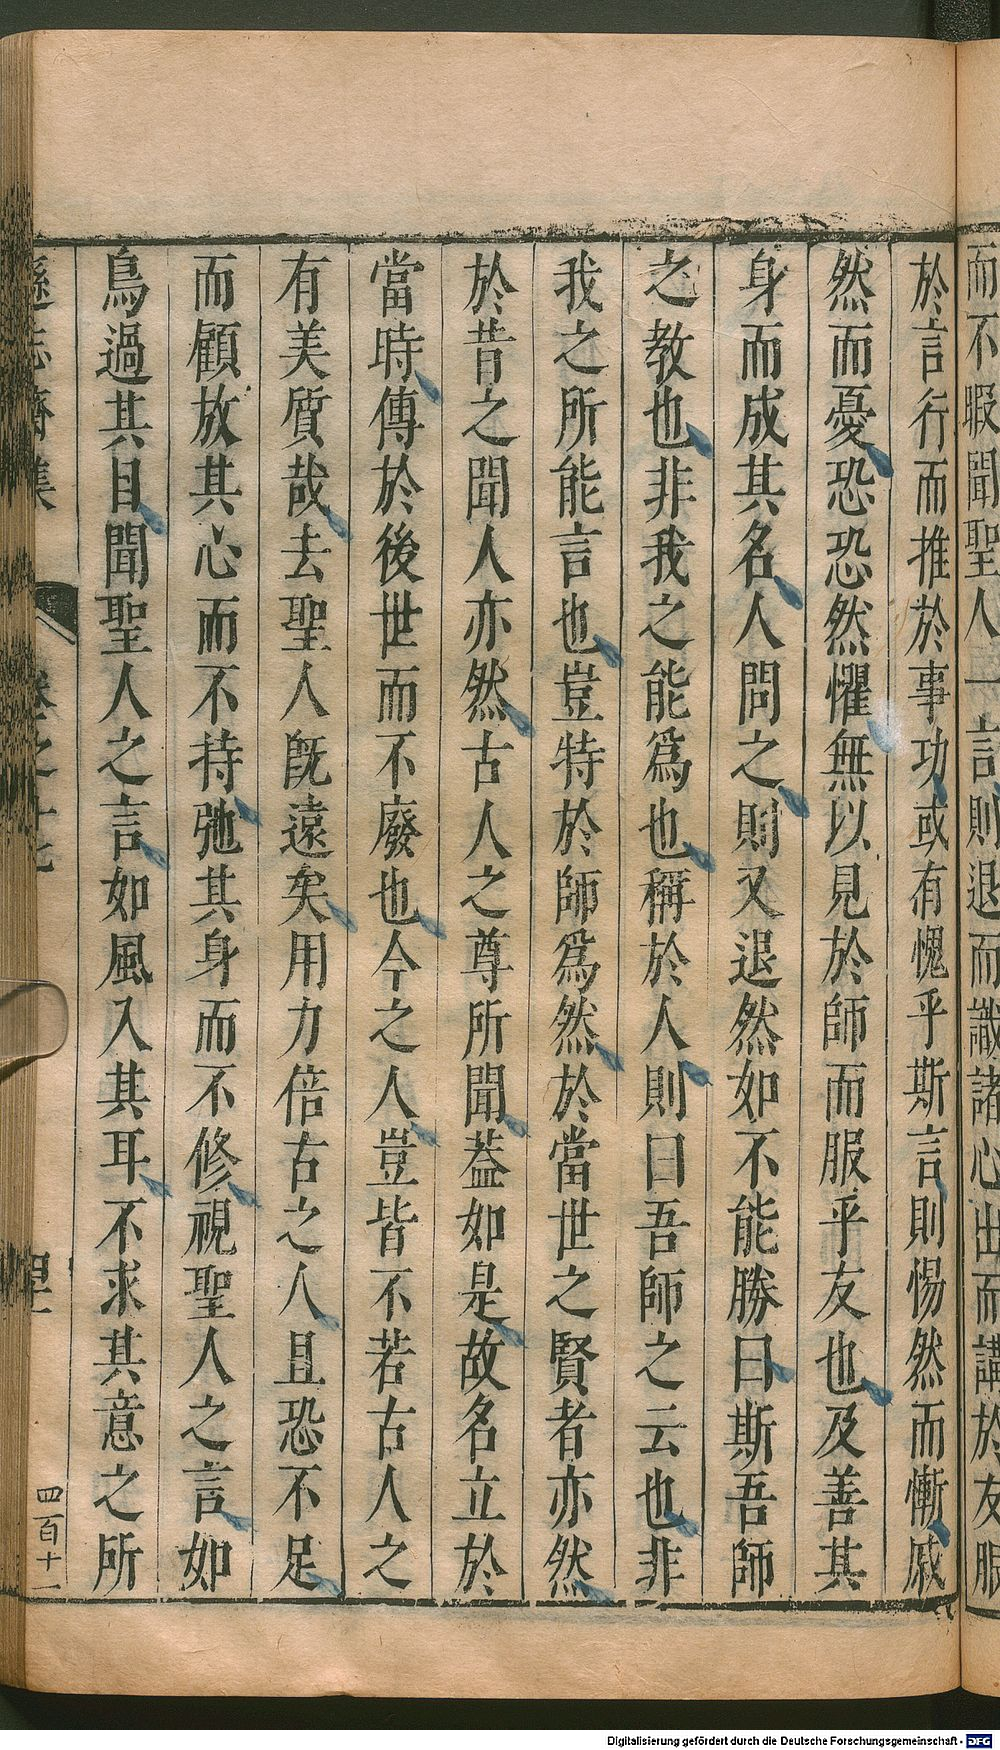 而不暇聞聖人一言則退而識諸心出而講於友服
於言行而推於事功或有愧乎斯言則惕然而慚戚
然而憂恐恐然懼無以見於師而服乎友也及善其
身而成其名人問之則又退然如不能勝曰斯吾師
之教也非我之能爲也稱於人則曰吾師之云也非
我之所能言也豈特於師爲然於當世之賢者亦然
於昔之聞人亦然古人之尊所聞蓋如是故名立於
當時傳於後世而不廢也今之人豈皆不若古人之
有美質哉去聖人既遠矣用力倍古之人且恐不足
而顧放其心而不持弛其身而不修視聖人之言如
鳥過其目聞聖人之言如風入其耳不求其意之所
遜志齋集 卷之十七
四百十一
Digitalisierung gefördert durch die Deutsche Forschungsgemeinschaft - DFG